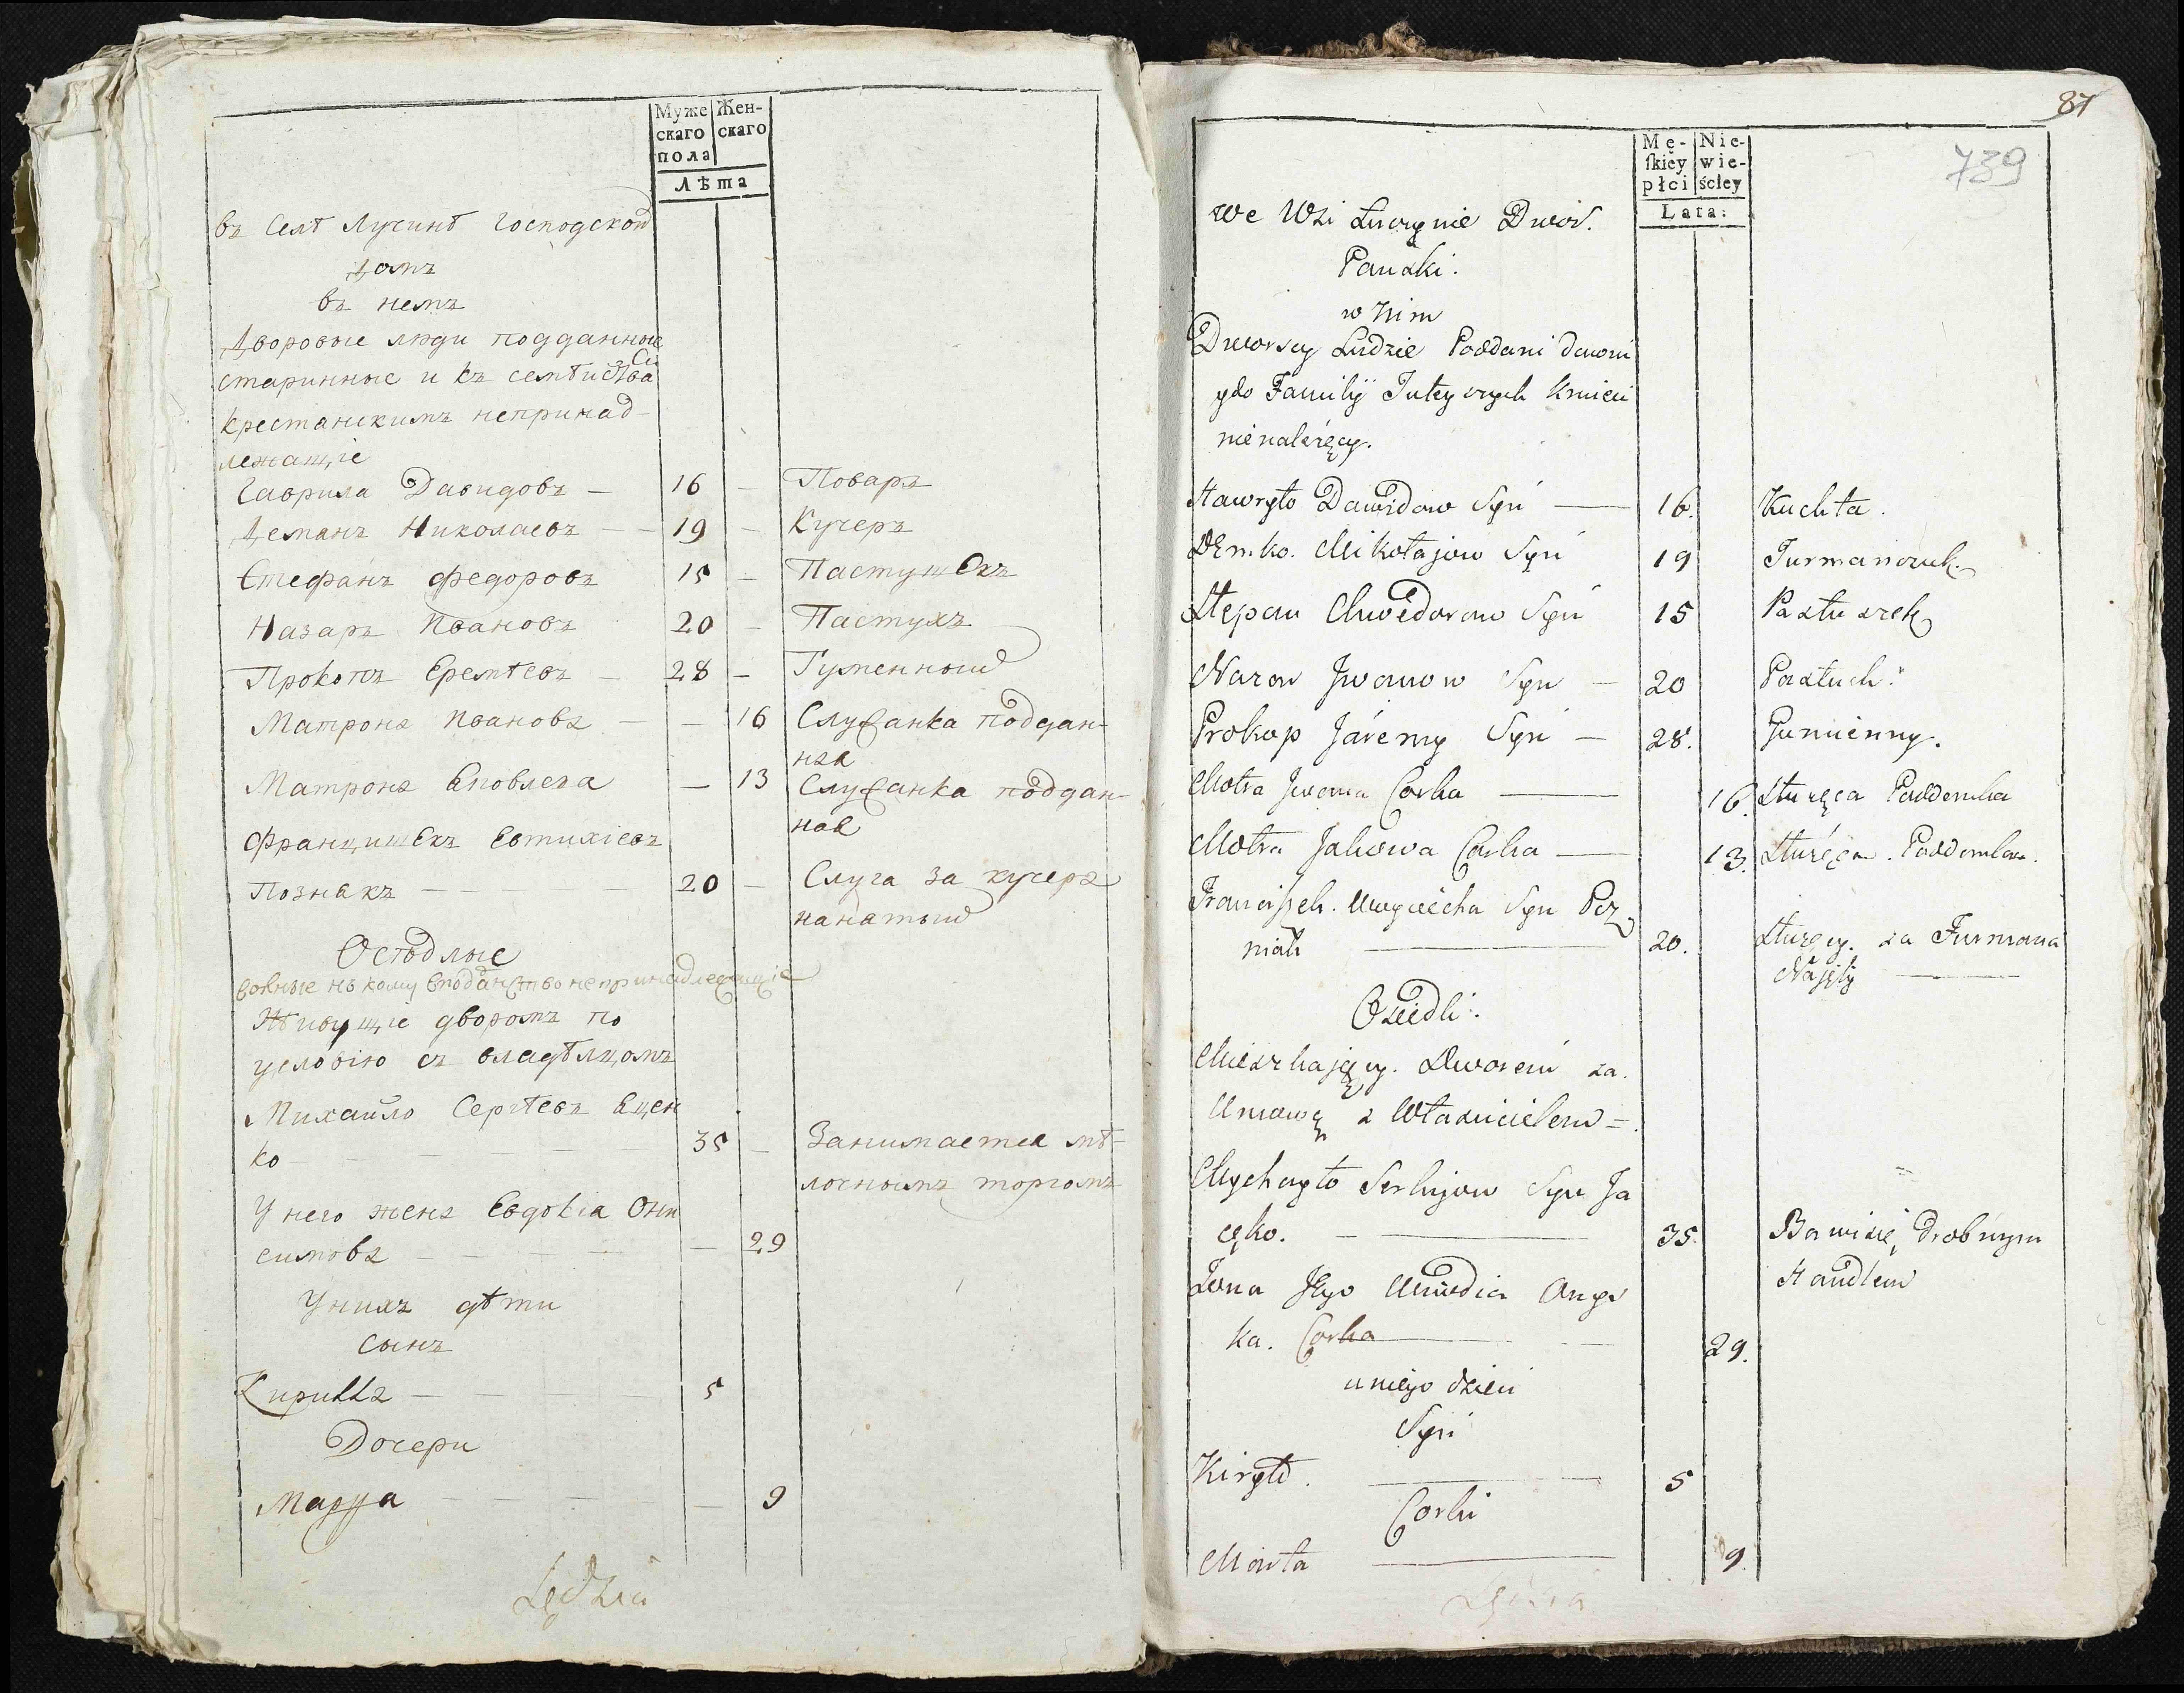 Муже
скаго
пола
Жен-
скаго
Лѣта
въ Селѣ Лучинѣ Господской
домъ
въ немъ
Дворовые люди подданные
старинные и къ семѣйства
крестанскимъ непринад-
лежащіе
Гаврила Давидовъ — 16 — Поваръ
Деманъ Николаевъ — 19 — Кучеръ
Стефанъ Федоровъ 15 — Пастушекъ
Назаръ Ивановъ 20 — Пастухъ
Прокопъ Еремѣевъ — 28 — Гуменный
Матрона Иванова — — 16 Служанка поддан-
ная
Матрона Яковлева — 13 Служанка поддан-
ная
Францишекъ Евтихіевъ
Познякъ — 20 — Слуга за кучера
нанятый
Осѣдлые
вольные ни кому в подданство не принадлежащіе
Живущіе дворомъ по
условію съ владѣлцомъ
Михайло Сергѣевъ Яцен
ко — 35 — Занимается мѣ-
лочнымъ торгомъ
У него жена Евдокія Они
симова — — 29
У нихъ дѣти
сынъ
Кирилла — 5
Дочери
Марѳа — — 9
87
739
Mę-
skiey
płci
Nie-
wie-
ściey
Lata:
We Wsi Łuczynie Dwor.
Panski.
w Nim
Dworscy Ludzie Poddani dawni
y do Familÿ Tuteyszych Kmieci
nienależący.
Hawryło Dawidow Syn — 16. Kuchta.
Demko. Mikołajow Syn 19 Furmańczuk.
Stepan Chwedorow Syn 15 Pastuszek
Nazar Iwanow Syn — 20 Pastuch.
Prokop Jaremy Syn — 28. Gumienny.
Motra Iwana Corka — 16. Służąca Poddanka
Motra Jakowa Corka — 13. Służąca. Poddanka.
Franciszek. Woyciecha Syn Poz
niak — 20. Służący. za Furmana
Najęty —
Osiedli.
Mieszkający. Dworem za.
Umową z Właścicielem =.
Mychayło Serhijow Syn Ja
cęko. — 35. Bawi się drobnym
Handlem
Żona Jego Uwdia
ka. Corka — 29.
u niego dzieci
Syn
Kiryło. — 5
Corki
Marta — 9.